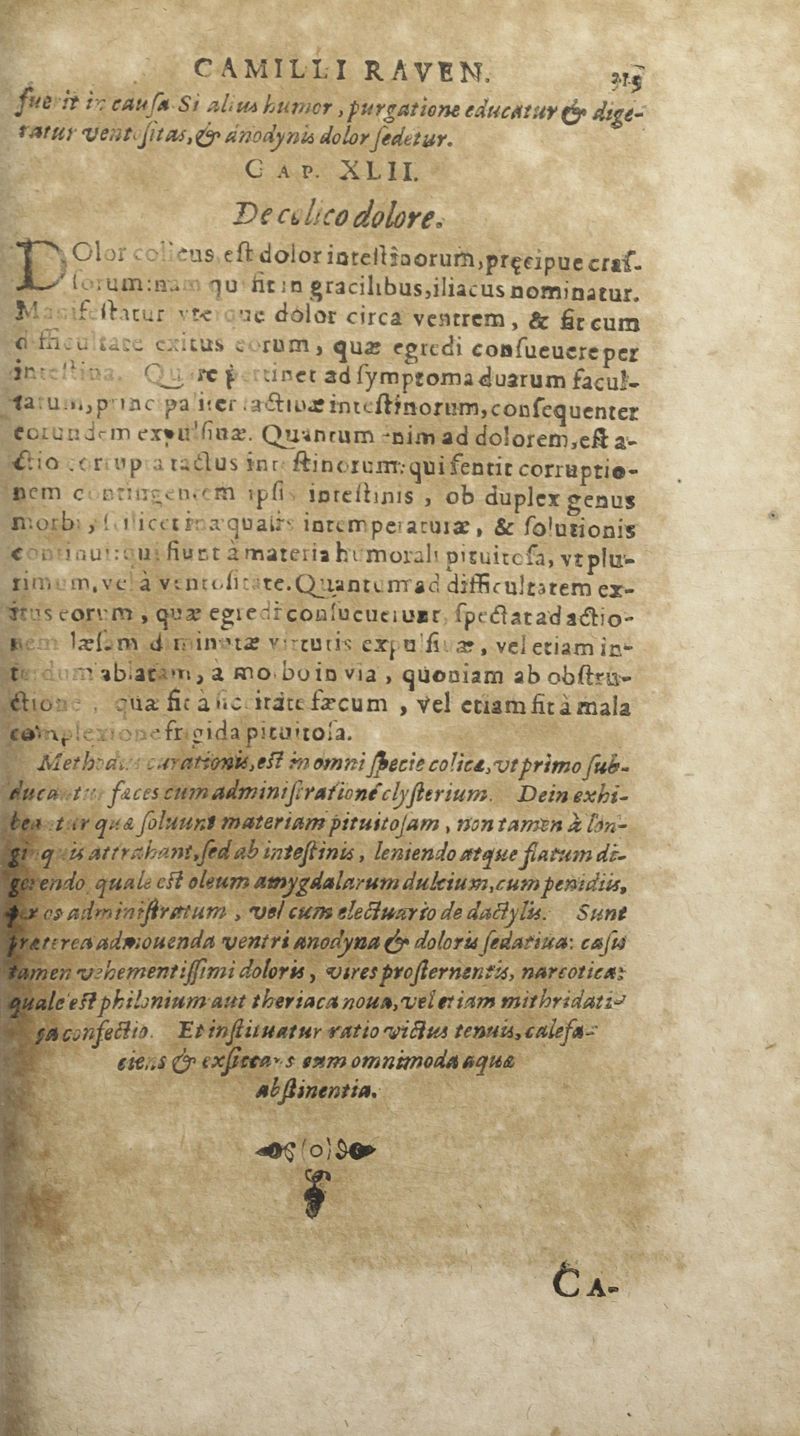 CAMILLI RAVEN.
in causa Si alius humor, purgatione educatur & dige-
ratur ventositas, & anodynis dolor sedetur.
CAP. XLII.
De colico dolore.
DOlor colicus est dolor intestinorum, pręcipue cras-
qui fit in gracilibus, iliacus nominatur.
dolor circa ventrem, & fit cum
exitus eorum, quæ egredi consueuere per
ad symptoma duarum facul-
actiuæ intestinorum, consequenter
expulsiuæ. Quantum enim ad dolorem, est a-
intestinorum: qui sentit corruptio-
nem ipsis intestinis, ob duplex genus
morbi, intemperaturæ, & solutionis
fiunt à materia humorali pituitosa, vt plu-
rimum, vel à ventositate. Quantum ad difficultatem ex-
itus eorum, quæ egredi consueuerunt, spectat ad actio-
læsam virtutis expulsiuæ, vel etiam in-
à morbo in via, quoniam ab obstru-
ctione, quæ fit à fæcum, vel etiam fit à mala
frigida pituitosa.
Methodus curationis, est in omni specie colicæ, vt primo sub-
fæces cum administratione clysterium. Dein exhi-
quæ soluunt materiam pituitosam, non tamen à lon-
attrahant, sed ab intestinis, leniendo atque flatum di-
gerendo quale est oleum amygdalarum dulcium, cum penidiis,
per os administratum, vel cum electuario de dactylis. Sunt
præterea admouenda ventri anodyna & doloris sedatiua: casu
tamen vehementissimi doloris, vires prosternentis, narcotica:
quale est philonium aut theriaca noua, vel etiam mithridati-
ca confectio. Et instituatur ratio victus tenuis, calefa-
ciens & exsiccans cum omnimoda aquæ
abstinentia.
(o)
CA-